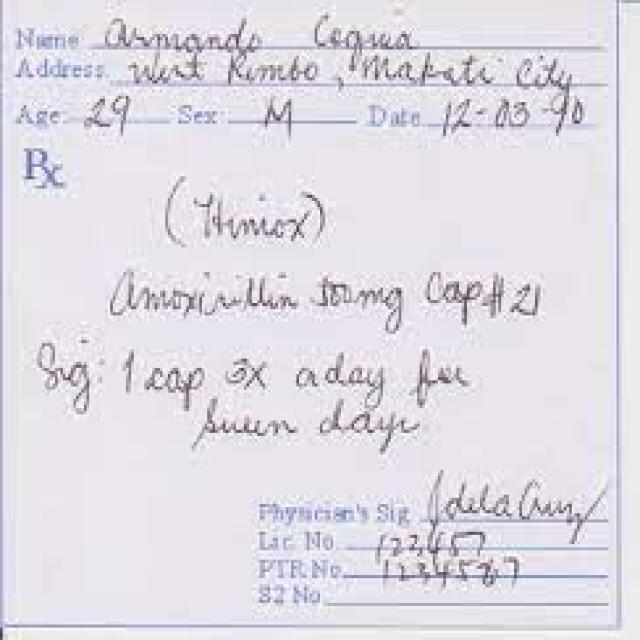 Name Armando Cogua
Address West Rembo, Makati City
Age: 29 Sex: M Date 12-03-90
Rx
(Himox)
Amoxicillin 500mg Cap #21
Sig: 1 cap 3x a day for
seven days
Physician's Sig JdelaCruz
Lic. No. 123457
PTR No. 1234567
S2 No.